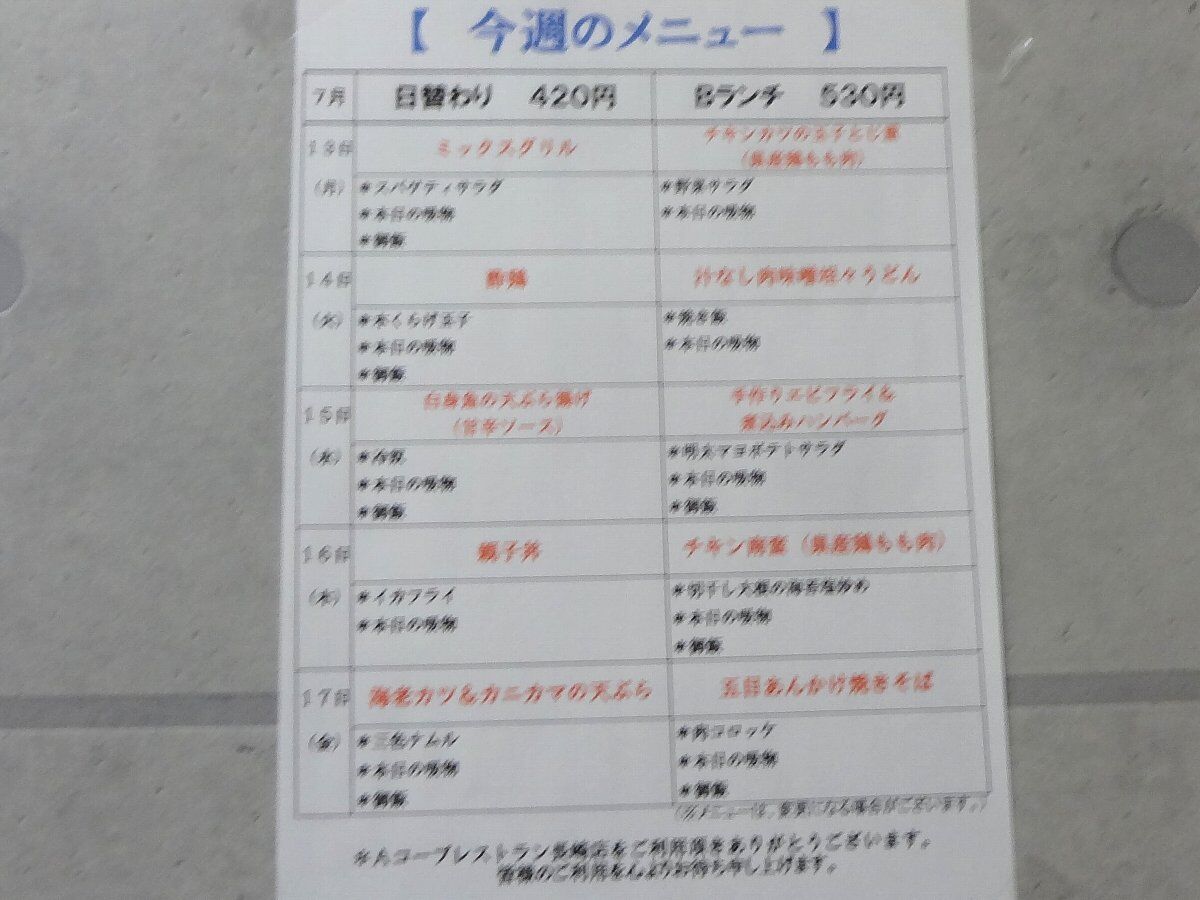 【 今週のメニュー 】
7月 日替わり 420円 Bランチ 530円
13日 ミックスグリル チキンカツの玉子とじ煮
(県産鶏もも肉)
(月) *スパゲティサラダ *野菜サラダ
*本日の吸物 *本日の吸物
*御飯
14日 酢鶏 汁なし肉味噌坦々うどん
(火) *木くらげ玉子 *焼き飯
*本日の吸物 *本日の吸物
*御飯
15日 白身魚の天ぷら揚げ 手作りエビフライ&
(甘辛ソース) 煮込みハンバーグ
(水) *冷奴 *明太マヨポテトサラダ
*本日の吸物 *本日の吸物
*御飯 *御飯
16日 親子丼 チキン南蛮(県産鶏もも肉)
(木) *イカフライ *切干し大根の
*本日の吸物 *本日の吸物
*御飯
17日 海老カツ&カニカマの天ぷら 五目あんかけ焼きそば
(金) *三色ナムル *肉コロッケ
*本日の吸物 *本日の吸物
*御飯 *御飯
(※メニューは、変更になる場合がございます。)
コープレストラン をご利用頂きありがとうございます。
皆様のご利用を心よりお待ち申し上げます。